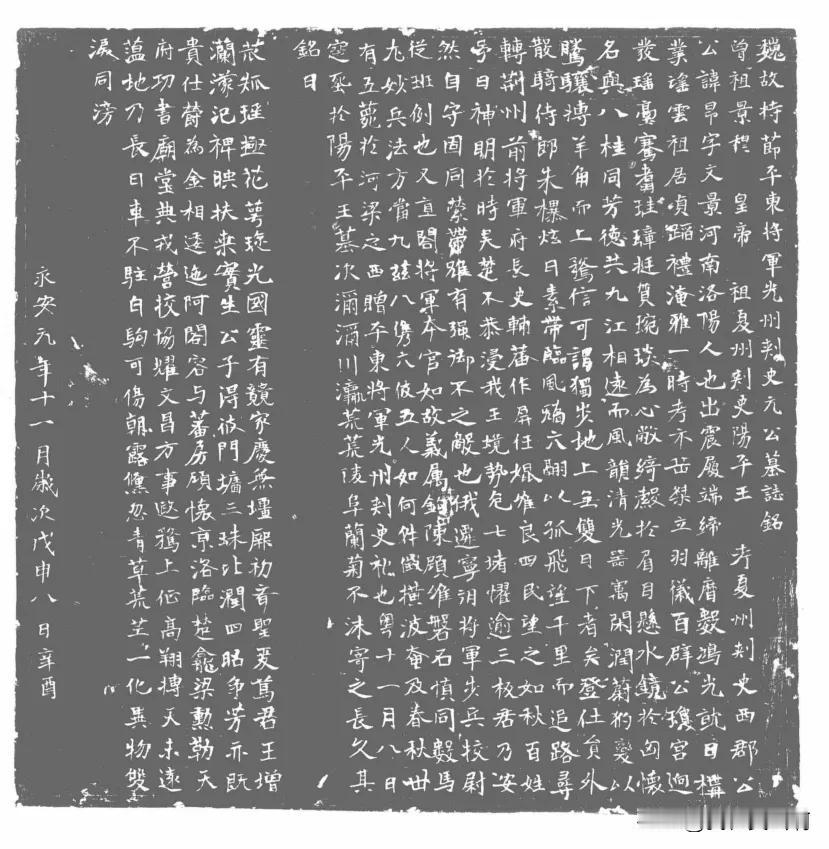 魏故持節平東將軍光州刺史元公墓誌銘
曾祖景穆皇帝 祖夏州刺史陽平王 考夏州刺史西郡公
公諱昂字文景河南洛陽人也出震履端締離磨鴻光就日構
業瑤雲祖居貞蹈禮淹雅一時考不桀立羽儀百群公瓊宮迥
發瑤臺騫珪璋挺質琬琰為心敞綺縠於眉目懸水鏡於匈懷
名與八桂同芳德共九江相遠而風韻清光器寓閑潤蔚豹變以
騰驤摶羊角而上騖信可謂獨步地上無雙日下者矣登仕員外
散騎侍郎朱襮炫日素帶臨風騁六翮以孤飛望千里而追路尋
轉荊州前將軍府長史輔蕃作屏任唯良四民望之如秋百姓
号曰神明於時吳楚不恭侵我王境勢危七堵懼逾三板君乃安
然自守固同縈帶雖有強御不之敵也俄遷寧朔將軍步兵校尉
從班例也又直閤將軍本官如故義属鉤陳顧維磐石慎同數馬
尤妙兵法方當九茲八儁六彼五人如何橫波奄及春秋卌
有五薨於河梁之西贈平東將軍光州刺史礼也粵十一月八日
窆塟於陽平王墓次瀰瀰川瀛荒荒陵阜蘭菊不沬寄之長久其
銘曰
極花萼琁光國靈有競家慶無壃厥初育聖爰篤君王增
瀾濛汜裨映扶桒實生公子得彼門墉三珠比潤四照爭芳亦既
貴仕鬱為金相逶迤阿閣容与蕃房碩懷京洛臨楚龕梁勲勒天
府功書廟堂典戎營校協耀文昌方事鵷上仁高翔摶天未遠
薀地乃長日車不駐白駒可傷朝露儵忽青草荒芒一化異物雙
淚同滂
永安元年十一月歲次戊申八日辛酉